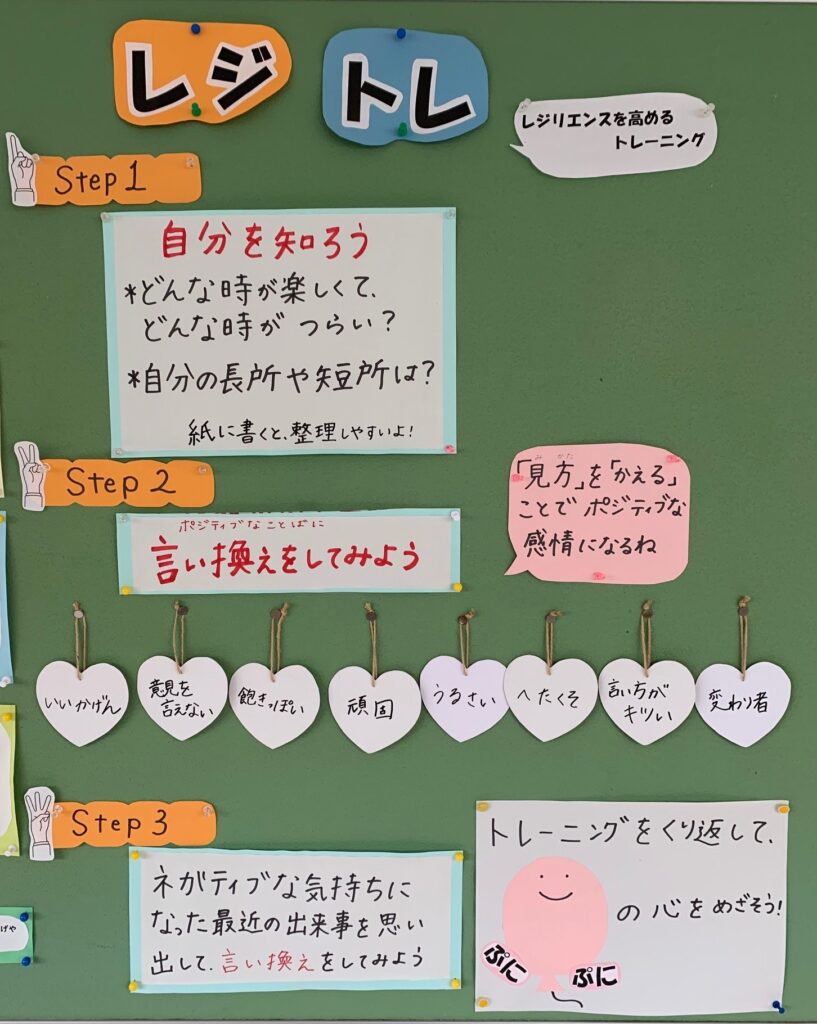 レジトレ
レジリエンスを高める
トレーニング
Step 1
自分を知ろう
*どんな時が楽しくて、
どんな時が つらい？
*自分の長所や短所は？
紙に書くと、整理しやすいよ！
Step 2
ポジティブなことばに
言い換えをしてみよう
みかた
「見方」を「かえる」
ことで ポジティブな
感情になるね
いいかげん
意見を
言えない
飽きっぽい
頑固
うるさい
へたくそ
言い方が
キツい
変わり者
Step 3
ネガティブな気持ちに
なった最近の出来事を思い
出して、言い換えをしてみよう
トレーニングをくり返して、
の心をめざそう！
ぷに
ぷに